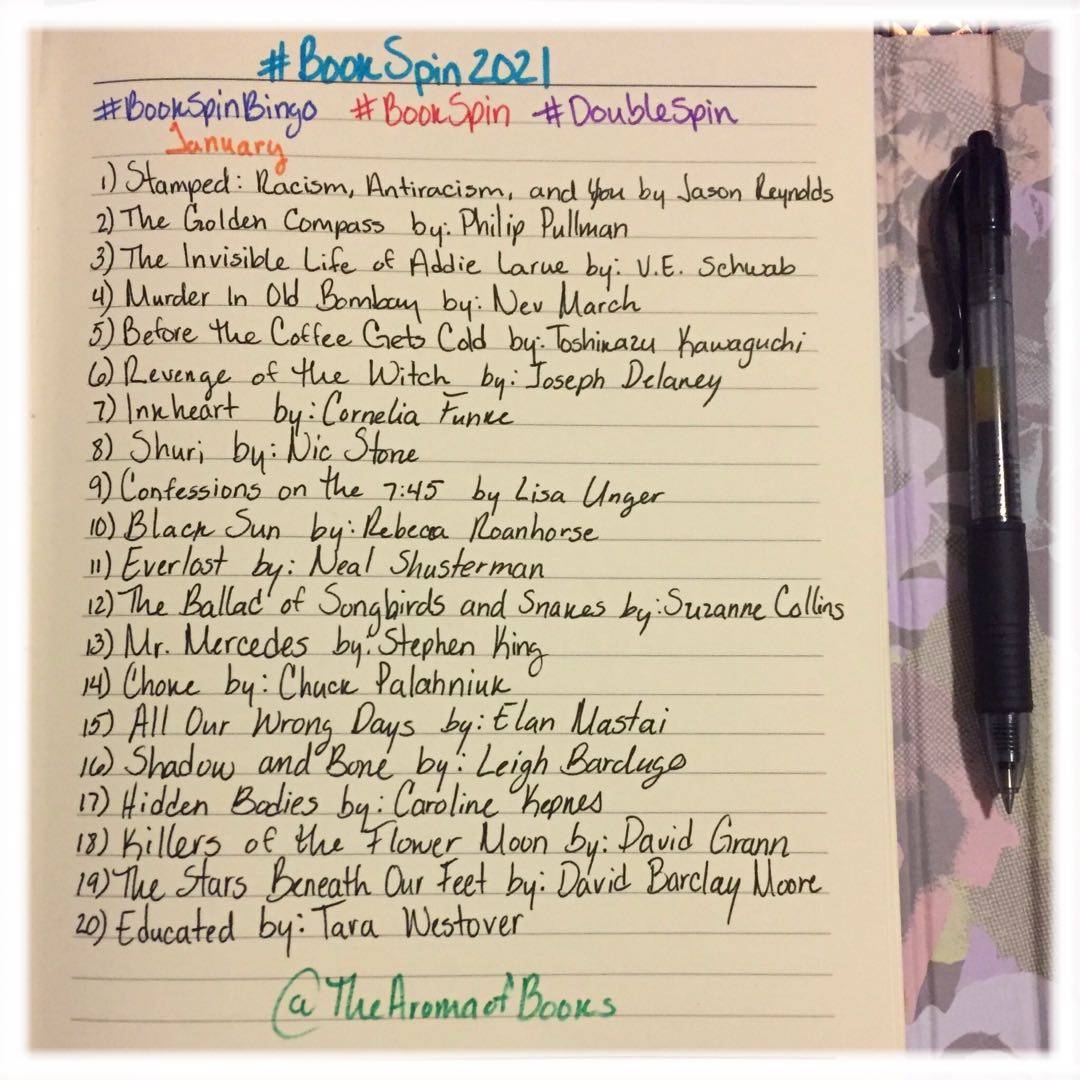 #BookSpin2021
#BookSpinBingo #BookSpin #DoubleSpin
January
1) Stamped: Racism, Antiracism, and You by Jason Reynolds
2) The Golden Compass by: Philip Pullman
3) The Invisible Life of Addie Larue by: V.E. Schwab
4) Murder In Old Bombay by: Nev March
5) Before the Coffee Gets Cold by: Toshikazu Kawaguchi
6) Revenge of the Witch by: Joseph Delaney
7) Inkheart by: Cornelia Funke
8) Shuri by: Nic Stone
9) Confessions on the 7:45 by Lisa Unger
10) Black Sun by: Rebecca Roanhorse
11) Everlost by: Neal Shusterman
12) The Ballad of Songbirds and Snakes by: Suzanne Collins
13) Mr. Mercedes by: Stephen King
14) Choke by: Chuck Palahniuk
15) All Our Wrong Days by: Elan Mastai
16) Shadow and Bone by: Leigh Bardugo
17) Hidden Bodies by: Caroline Kepnes
18) Killers of the Flower Moon by: David Grann
19) The Stars Beneath Our Feet by: David Barclay Moore
20) Educated by: Tara Westover
@TheAromaofBooks